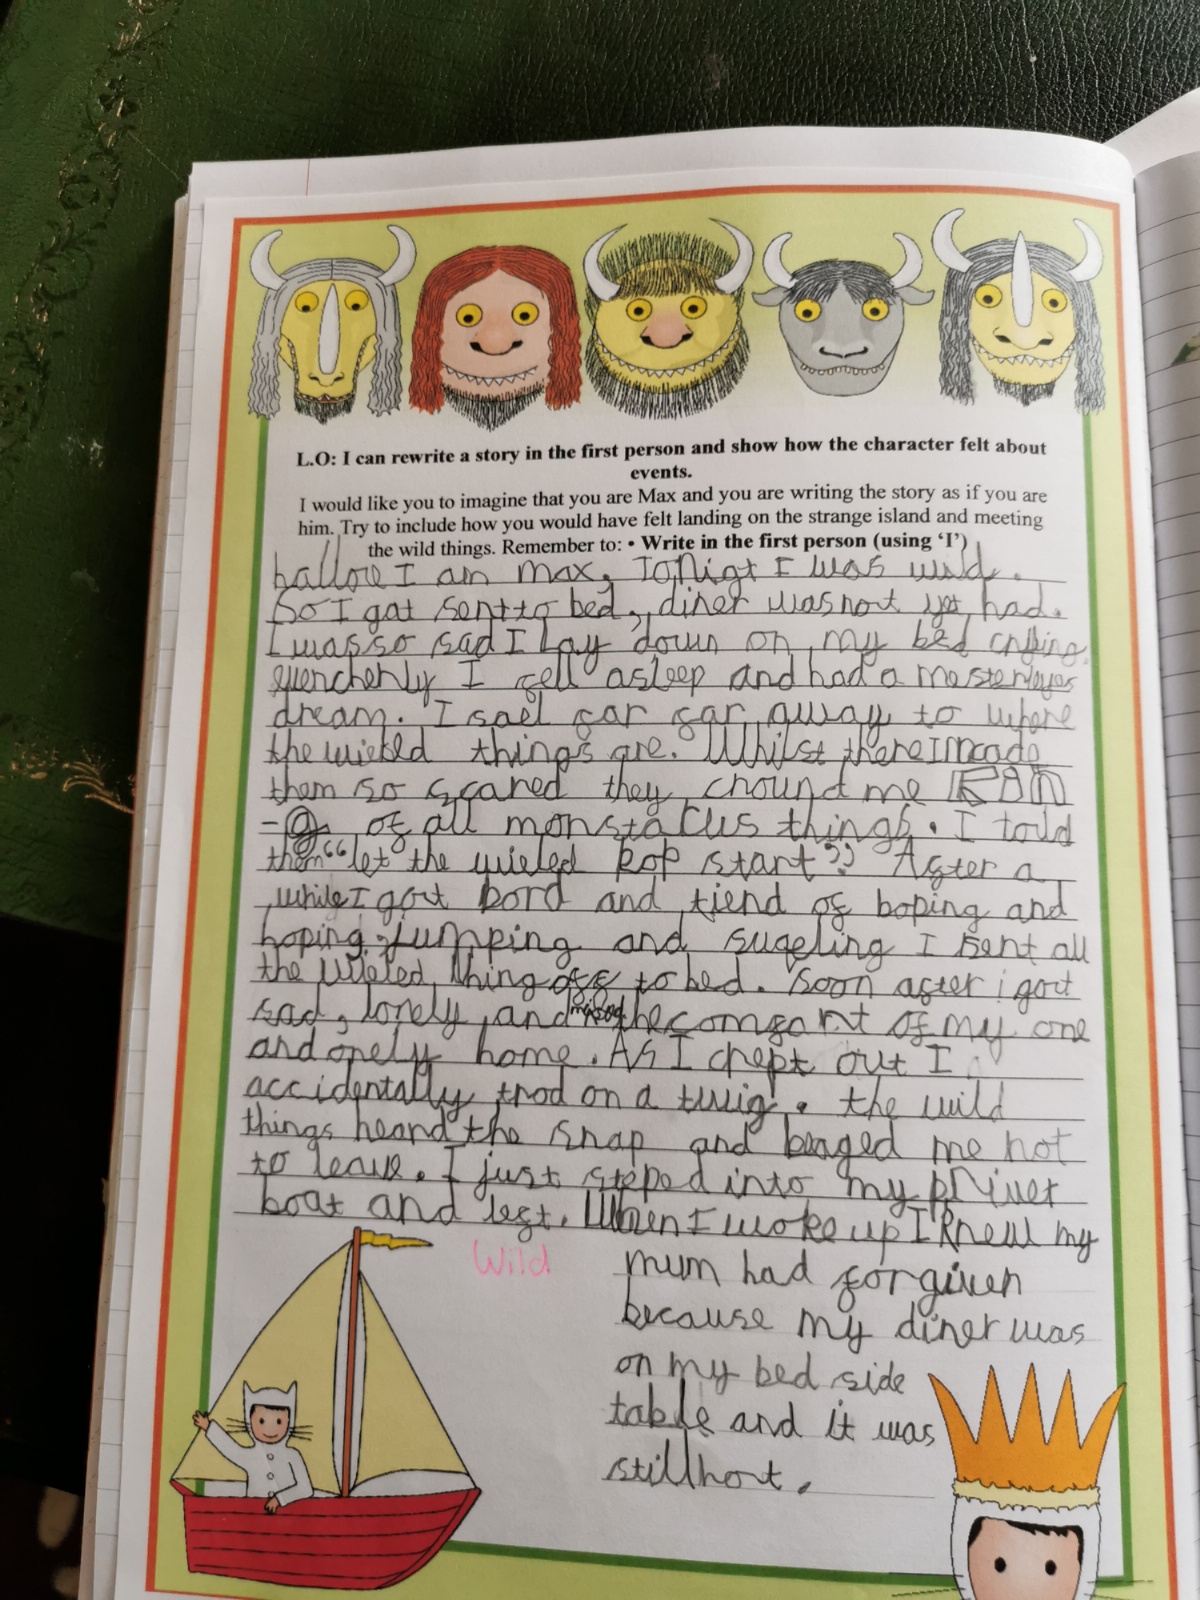 L.O: I can rewrite a story in the first person and show how the character felt about
events.
I would like you to imagine that you are Max and you are writing the story as if you are
him. Try to include how you would have felt landing on the strange island and meeting
the wild things. Remember to: • Write in the first person (using 'I')
hallow I am max. Tonigt I was wild.
So I got sent to bed, diner was not yet had.
I was so sad I lay down on my bed criying.
I fell asleep and had a
dream. I sael far far away to where
the wieled things are. Whilst there I made
them so scared they chound me KING
of all things. I told
them "let the wieled Rop start" After a
while I got bord and tiend of boping and
hoping jumping and sugeling I sent all
the wieled thing off to bed. Soon after i got
sad, lonely, and missed the comfart of my one
and onely home. As I crept out I
accidentally trod on a twig. the wild
things heard the snap and beaged me not
to leave. I just steped into my priver
boat and left. When I woke up I knew my
Wild
mum had forgiven
because my diner was
on my bed side
table and it was
still hot.